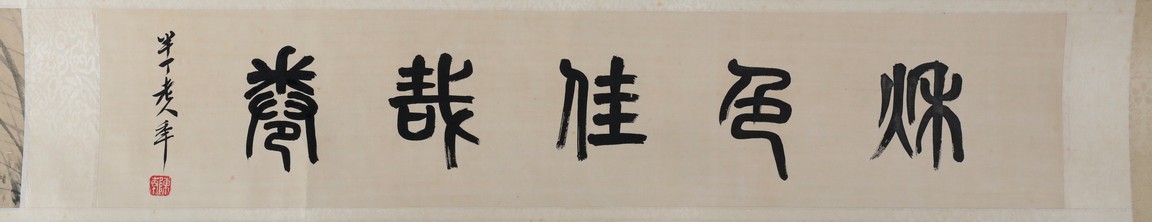 秌色佳哉卷
半丁老人年